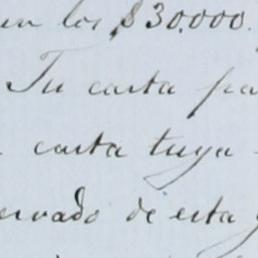 en los $30.000.
Tu carta pa
carta tuya
ervado de esta y